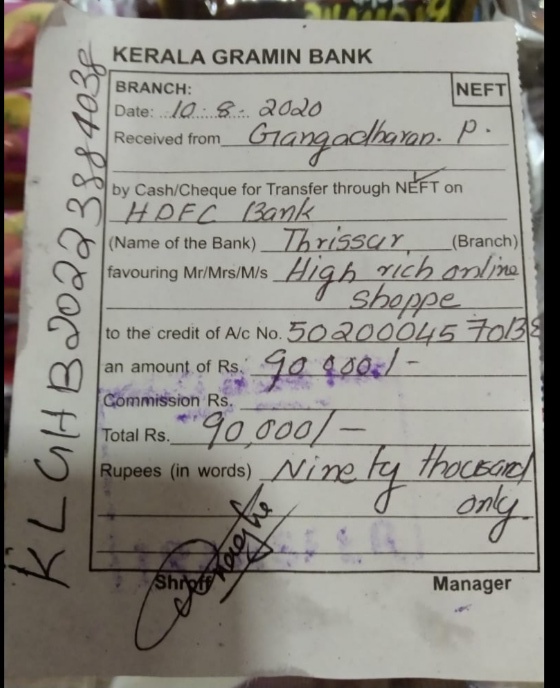 KERALA GRAMIN BANK
BRANCH:
NEFT
Date: 10.8. 2020
Received from Gangadharan. P.
by Cash/Cheque for Transfer through NEFT on
HDFC Bank
(Name of the Bank) Thrissur, (Branch)
favouring Mr/Mrs/M/s High rich online
Shoppe
to the credit of A/c No. 50200045 70138
an amount of Rs. 90 000/-
Commission Rs.
Total Rs. 90,000/-
Rupees (in words) Ninety thousand
only
Shroff
Manager
KLGHB20223884038